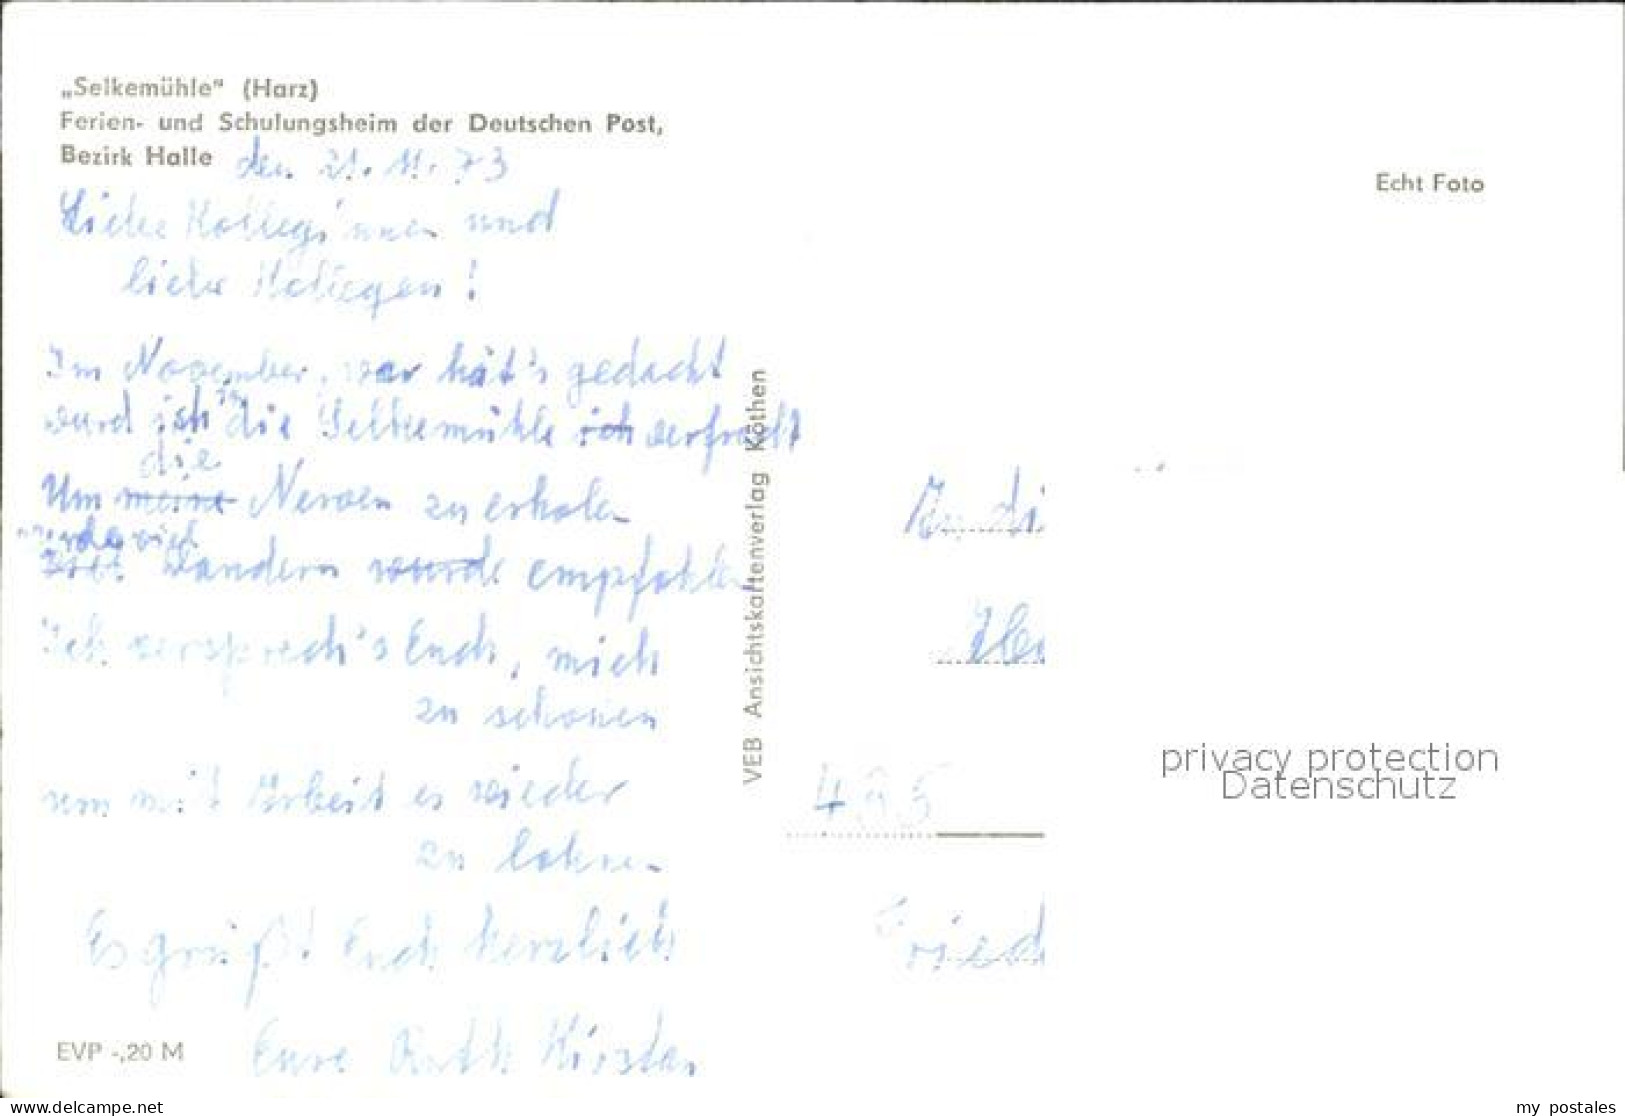 „Selkemühle" (Harz)
Ferien- und Schulungsheim der Deutschen Post,
Bezirk Halle den 21. 11. 73
Echt Foto
Liebe Kolleginnen und
liebe Kollegen!
Im November, wer hät's gedacht
wurd ich in die Selkemühle ich verfracht
die
Um meine Nerven zu erholen
wurde viel
Viel Wandern wurde empfohlen
Ich versprech's Euch, mich
zu schonen
um mit Arbeit es wieder
zu lohnen
Es grüßt Euch herzlich
Eure Ruth Kirsten
EVP -,20 M
VEB Ansichtskartenverlag Köthen
An di
485
Fried
privacy protection
Datenschutz
delcampe.net
my_postales